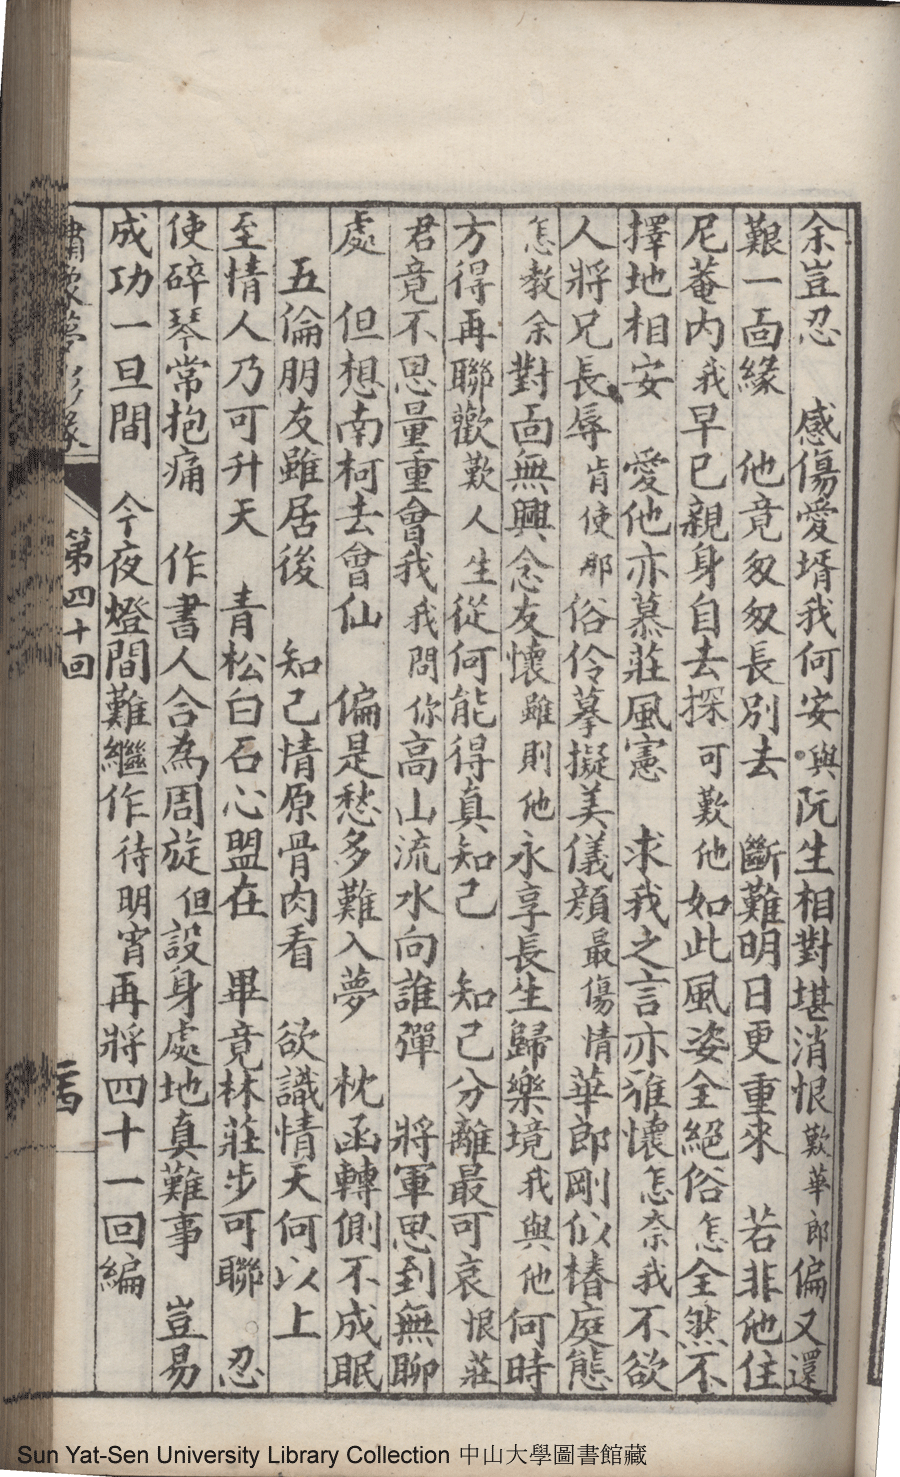 余豈忍　感傷愛壻我何安與阮生相對堪消恨歎華郎偏又還
艱一面緣　他竟匆匆長別去　斷難明日更重來　若非他住
尼菴內我早已親身自去探可歎他如此風姿全絕俗怎全然不
擇地相安　愛他亦慕莊風憲　求我之言亦雅懷怎奈我不欲
人將兄長辱肯使那俗伶摹擬美儀顏最傷情華郎剛似椿庭態
怎教余對面無興念友懷雖則他永享長生歸樂境我與他何時
方得再聯歡歎人生從何能得真知己　知己分離最可哀恨莊
君竟不思量重會我我問你高山流水向誰彈　將軍思到無聊
處　但想南柯去會仙　偏是愁多難入夢　枕函轉側不成眠
五倫朋友雖居後　知己情原骨肉看　欲識情天何以上
至情人乃可升天　青松白石心盟在　畢竟林莊步可聯　忍
使碎琴常抱痛　作書人合為周旋但設身處地真難事　豈易
成功一旦間　今夜燈間難繼作待明宵再將四十一回編
夢影緣
第四十回
Sun Yat-Sen University Library Collection 中山大學圖書館藏